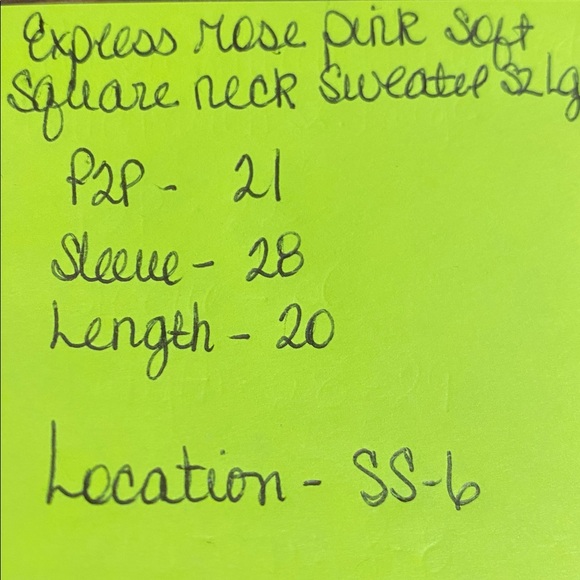 Express rose pink soft
square neck sweater sz lg
P2P - 21
Sleeve - 28
Length - 20
Location - SS-6